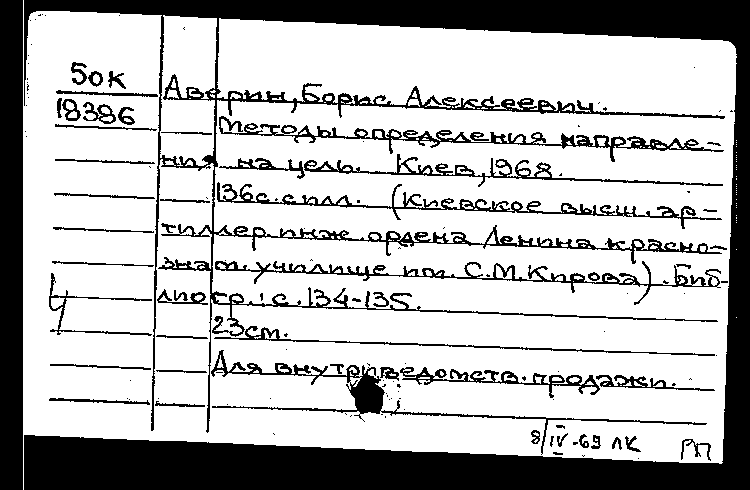 50К
18386
Аверин, Борис Алексеевич.
Методы определения направле-
ния на цель. Киев, 1968.
136с. с илл. (Киевское высш. ар-
тиллер. инж. ордена Ленина красно-
знам. училище им. С.М. Кирова). Биб-
лиогр.: с. 134-135.
23см.
Для внутриведомств. продажи.
8/IV-69 ЛК
РП